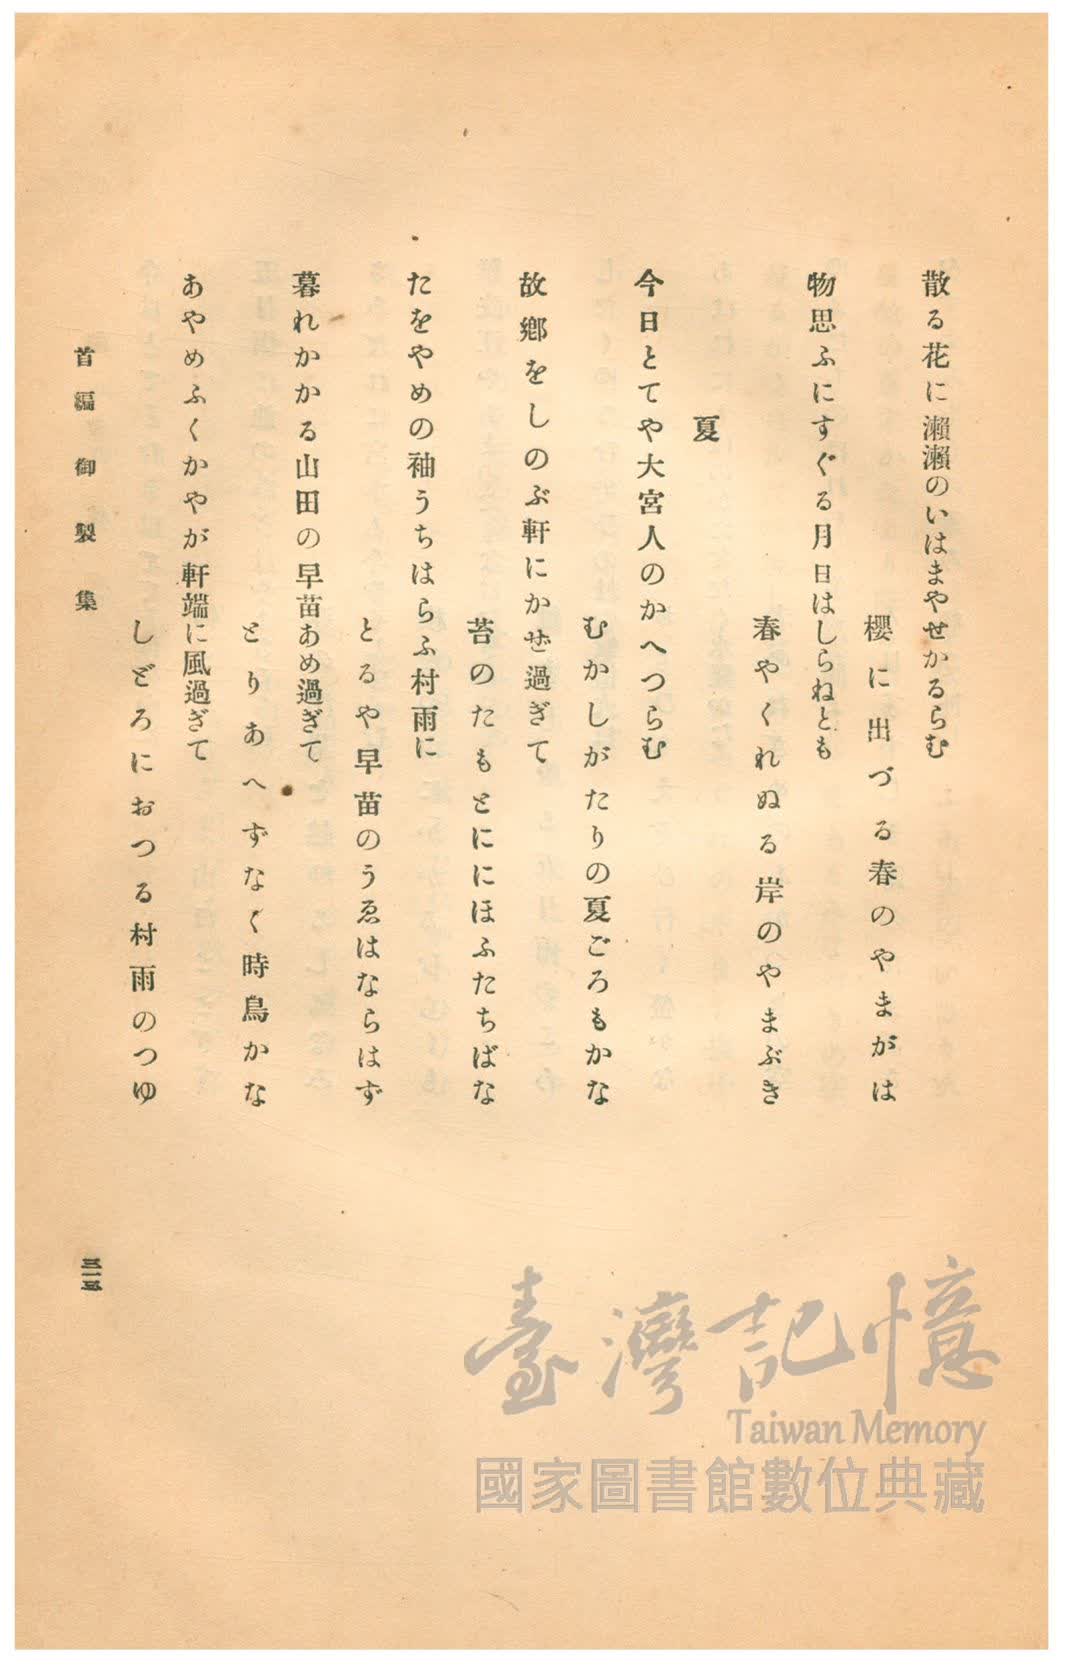 散る花に瀨瀨のいはまやせかるらむ
櫻に出づる春のやまがは
物思ふにすぐる月日はしらねとも
春やくれぬる岸のやまぶき
夏
今日とてや大宮人のかへつらむ
むかしがたりの夏ごろもかな
故鄕をしのぶ軒にかぜ過ぎて
苔のたもとににほふたちばな
たをやめの袖うちはらふ村雨に
とるや早苗のうゑはならはず
暮れかかる山田の早苗あめ過ぎて
とりあへずなく時鳥かな
あやめふくかやが軒端に風過ぎて
しどろにおつる村雨のつゆ
首編御製集
臺灣記憶
Taiwan Memory
國家圖書館數位典藏